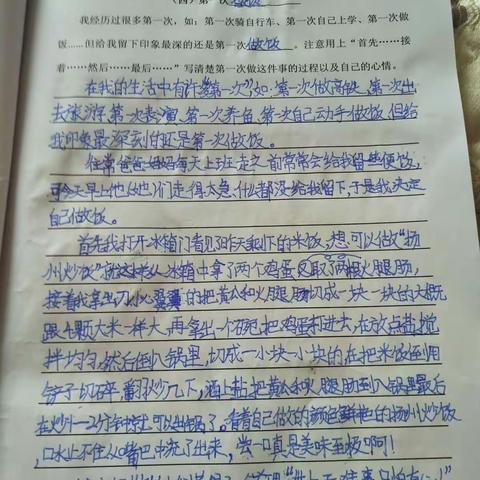 (四)第一次做饭
我经历过很多第一次，如：第一次骑自行车、第一次自己上学、第一次做
饭……但给我留下印象最深的还是第一次做饭。注意用上“首先……接
着……然后……最后……”写清楚第一次做这件事的过程以及自己的心情。
在我的生活中有许“第一次”如:第一次做高铁、第一次出
去旅游、第一次表演、第一次养鱼、第一次自己动手做饭,但给
我印象最深刻的还是第一次做饭。
往常爸爸妈妈每天上班走之前常常会给我留些便饭,
可今天早上他们走得太急,什么都没给我留下,于是我决定
自己做饭。
首先我打开冰箱门看见昨天剩下的米饭,想:可以做“扬
州炒饭”从冰箱中拿了两个鸡蛋又取了两根火腿肠,
接着我拿出刀小心翼翼的把黄瓜和火腿肠切成一块一块的大概
跟4颗大米一样大,再拿出一个碗,把鸡蛋打进去,在放点盐搅
拌均匀,然后倒入锅里,切成一小块一小块的在把米饭倒用
铲子切碎,翻炒几下,洒上盐,把黄瓜和火腿肠倒入锅里最后
在炒1-2分钟就可以出锅了。看着自己做的颜色鲜艳的扬州炒饭
,口水止不住从嘴巴中流了出来,尝一口真是美味至极啊!